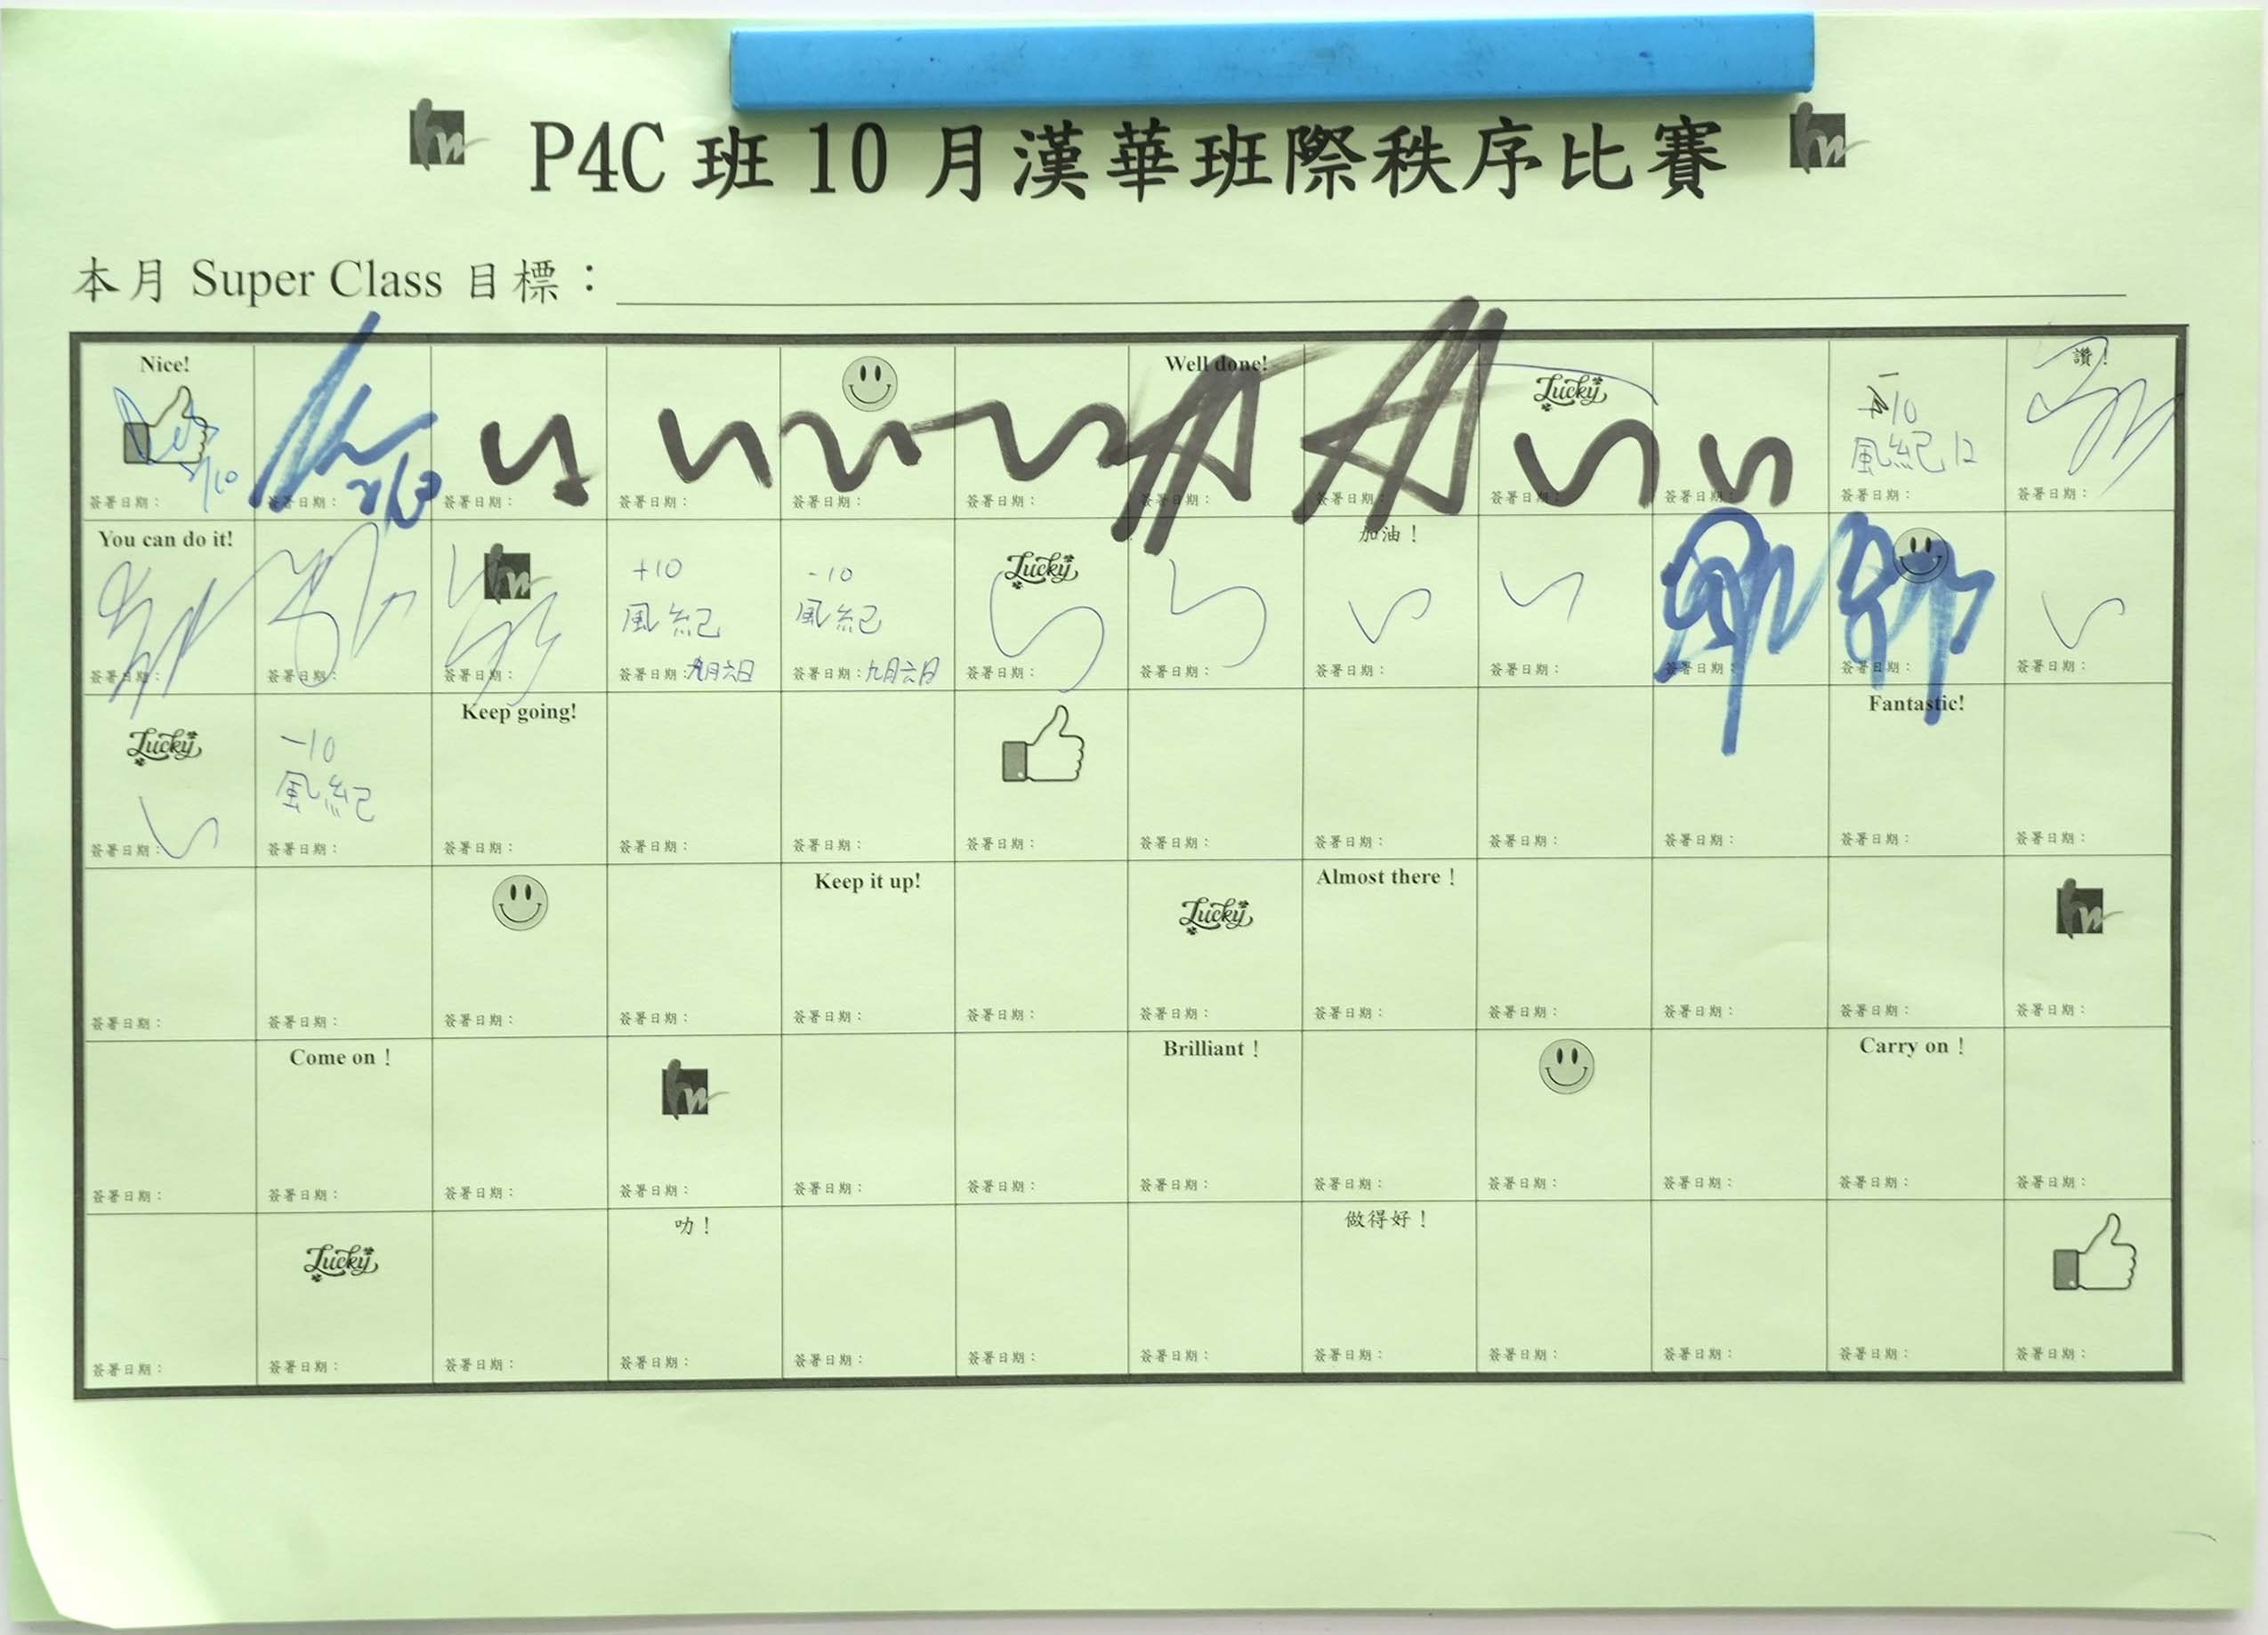 P4C 班 10 月漢華班際秩序比賽
本月 Super Class 目標：
Nice!
Well done!
Lucky
-10
讚！
2/10
風紀 12
簽署日期：
簽署日期：
簽署日期：
簽署日期：
簽署日期：
簽署日期：
簽署日期：
簽署日期：
簽署日期：
簽署日期：
簽署日期：
簽署日期：
You can do it!
hw
+10
-10
Lucky
加油！
風紀
風紀
簽署日期：
簽署日期：
簽署日期：
簽署日期：九月六日
簽署日期：九月六日
簽署日期：
簽署日期：
簽署日期：
簽署日期：
簽署日期：
簽署日期：
簽署日期：
Lucky
-10
Keep going!
Fantastic!
風紀
簽署日期：
簽署日期：
簽署日期：
簽署日期：
簽署日期：
簽署日期：
簽署日期：
簽署日期：
簽署日期：
簽署日期：
簽署日期：
簽署日期：
Keep it up!
Lucky
Almost there！
hw
簽署日期：
簽署日期：
簽署日期：
簽署日期：
簽署日期：
簽署日期：
簽署日期：
簽署日期：
簽署日期：
簽署日期：
簽署日期：
簽署日期：
Come on！
hw
Brilliant！
Carry on！
簽署日期：
簽署日期：
簽署日期：
簽署日期：
簽署日期：
簽署日期：
簽署日期：
簽署日期：
簽署日期：
簽署日期：
簽署日期：
簽署日期：
Lucky
叻！
做得好！
簽署日期：
簽署日期：
簽署日期：
簽署日期：
簽署日期：
簽署日期：
簽署日期：
簽署日期：
簽署日期：
簽署日期：
簽署日期：
簽署日期：